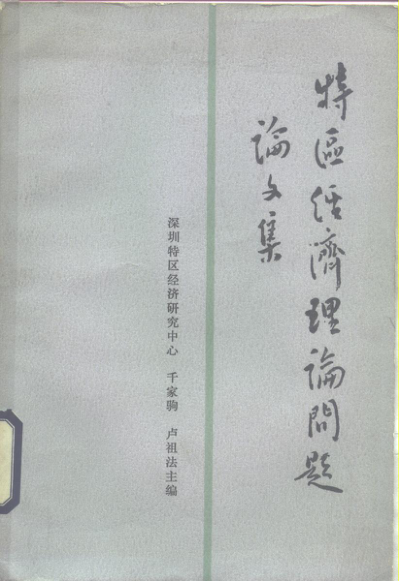 特區经濟理論問題
論文集
深圳特区经济研究中心 千家驹 卢祖法主编